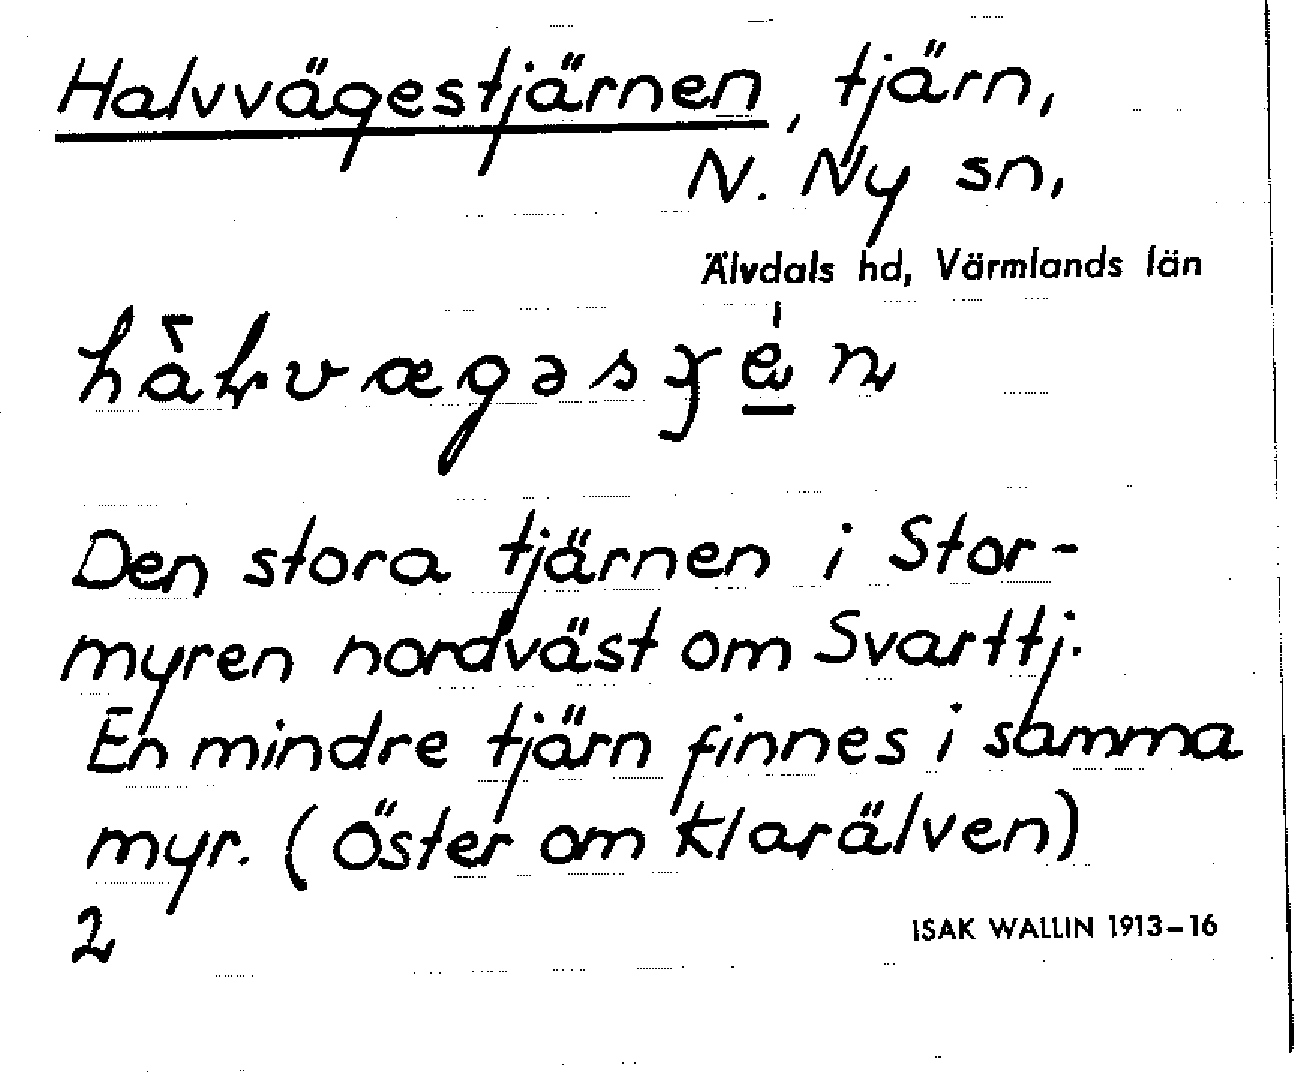 Halvvägestjärnen, tjärn,
N. Ny sn,
Älvdals hd, Värmlands län
Den stora tjärnen i Stor-
myren nordväst om Svarttj.
En mindre tjärn finnes i samma
myr. (Öster om Klarälven)
2
ISAK WALLIN 1913-16